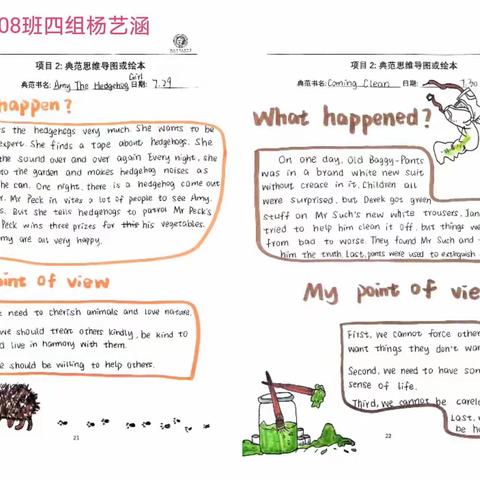 08班四组杨艺涵
项目 2: 典范思维导图或绘本
典范书名: Amy The Hedgehog Girl 日期: 7.29
happen?
s the hedgehogs very much. She wants to be
expert. She finds a tape about hedgehogs. She
the sound over and over again. Every night, she
to the garden and makes hedgehog noises as
he can. One night, there is a hedgehog come out
r. Mr Peck in vites a lot of people to see Amy.
s. But she tells hedgehogs to patrol Mr Peck's
Peck wins three prizes for this his vegetables.
my are all very happy.
oint of view
e need to cherish animals and love nature.
we should treat others kindly, be kind to
d live in harmony with them.
e should be willing to help others.
21
项目 2: 典范思维导图或绘本
典范书名: Coming Clean 日期: 7.30
What happened?
On one day, Old Baggy-Pants
was in a brand white new suit
without crease in it. Children all
were surprised, but Derek got green
stuff on Mr Such's new white trousers, Jan
tried to help him clean it off, but things we
from bad to worse. They found Mr Such and
him the truth. Last, pants were used to extinguish
My point of vie
First, we cannot force other
want things they don't wan
Second, we need to have som
sense of life.
Third, we cannot be carele
Last, w
be ho
22